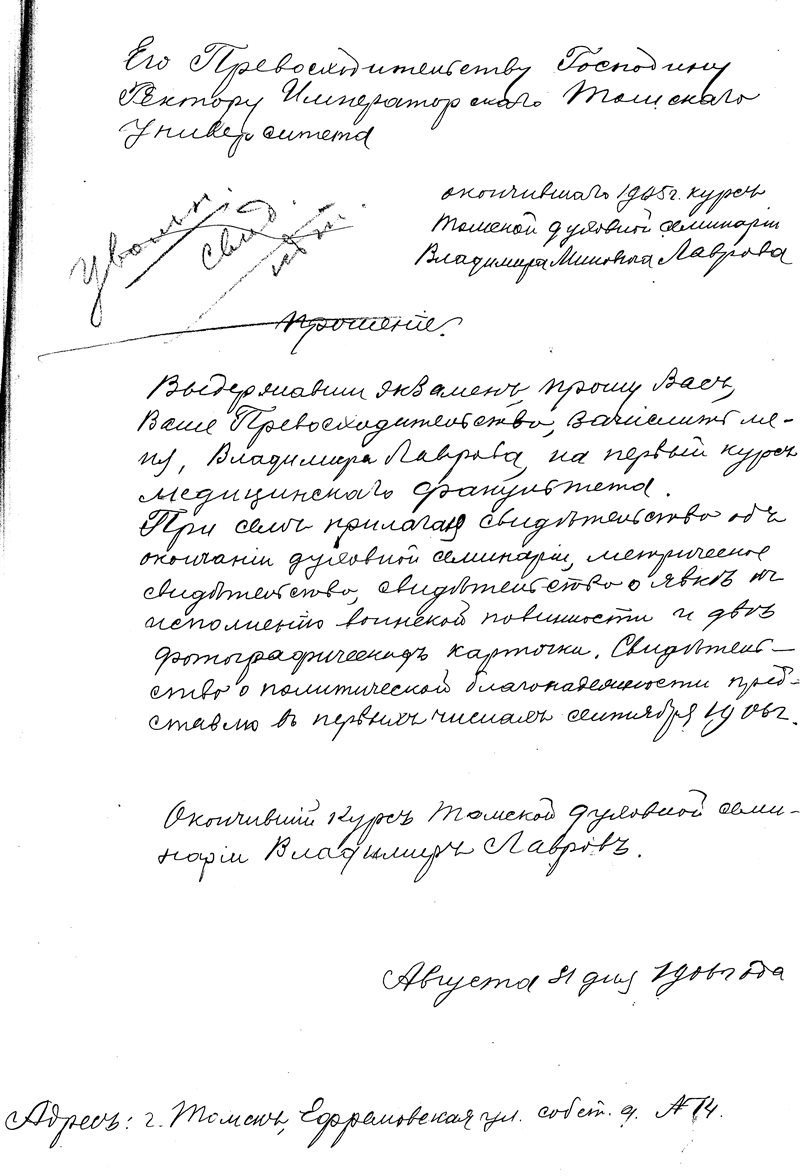 Его Превосходительству Господину
Ректору Императорскаго Томскаго
Университета
окончившаго 1905г. курсъ
Томской духовной семинаріи
Владимира Лаврова
Увольн.
свид.
Прошеніе.
Выдержавши экзаменъ, прошу Васъ,
Ваше Превосходительство, зачислить ме-
ня, Владимира Лаврова, на первый курсъ
медицинскаго факультета.
При семъ прилагая свидѣтельство объ
окончаніи духовной семинаріи, метрическое
свидѣтельство, свидѣтельство о явкѣ къ
исполненію воинской повинности и двѣ
фотографическихъ карточки. Свидѣтель-
ство о политической благонадежности пред-
ставлю въ первыхъ числахъ сентября 1906г.
Окончившій курсъ Томской духовной семи-
наріи Владимиръ Лавровъ.
Августа 31 дня 1906 года
Адресъ: г. Томскъ, Ефремовская ул. собст. д. № 14.